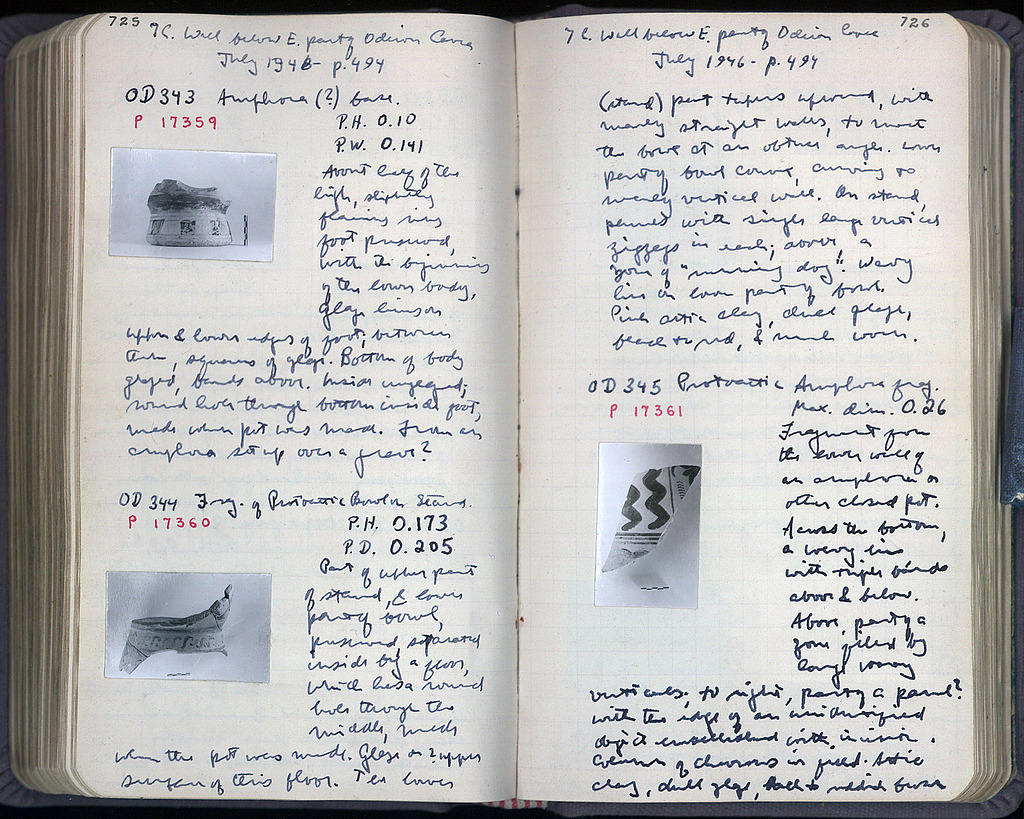 725
7 C. Well below E. part of Odeion Cavea
July 1946 - p. 494
OD 343 Amphora (?) base.
P 17359
P.H. 0.10
P.W. 0.141
About half of the
high, slightly
flaring ring
foot preserved,
with the beginning
of the lower body.
Glaze lines on
upper & lower edges of foot; between
them, squares of glaze. Bottom of body
glazed, bands above. Inside unglazed;
round hole through bottom inside foot,
made when pot was made. From an
amphora set up over a grave?
OD 344 Frag. of Protoattic Bowl on Stand.
P 17360
P.H. 0.173
P.D. 0.205
Part of upper part
of stand, & lower
part of bowl,
preserved, separated
inside by a floor,
which has a round
hole through the
middle, made
when the pot was made. Glaze on ? upper
surface of this floor. The lower
726
7 C. Well below E. part of Odeion Cavea
July 1946 - p. 494
(stand) part tapers upward, with
nearly straight walls, to meet
the bowl at an obtuse angle. Lower
part of bowl convex, curving to
nearly vertical wall. On stand,
panels with single large vertical
zigzags in each; above, a
zone of "running dog". Wavy
line on lower part of bowl.
Pink Attic clay, dull glaze,
black to red, & much worn.
OD 345 Protoattic Amphora frag.
P 17361
Max. dim. 0.26
Fragment from
the lower wall of
an amphora or
other closed pot.
Across the bottom,
a wavy line
with triple bands
above & below.
Above, part of a
zone filled by
large wavy
verticals; to right, part of a panel?
with the edge of an unidentified
object embellished with incision.
Column of chevrons in field. Attic
clay, dull glaze, black to reddish brown